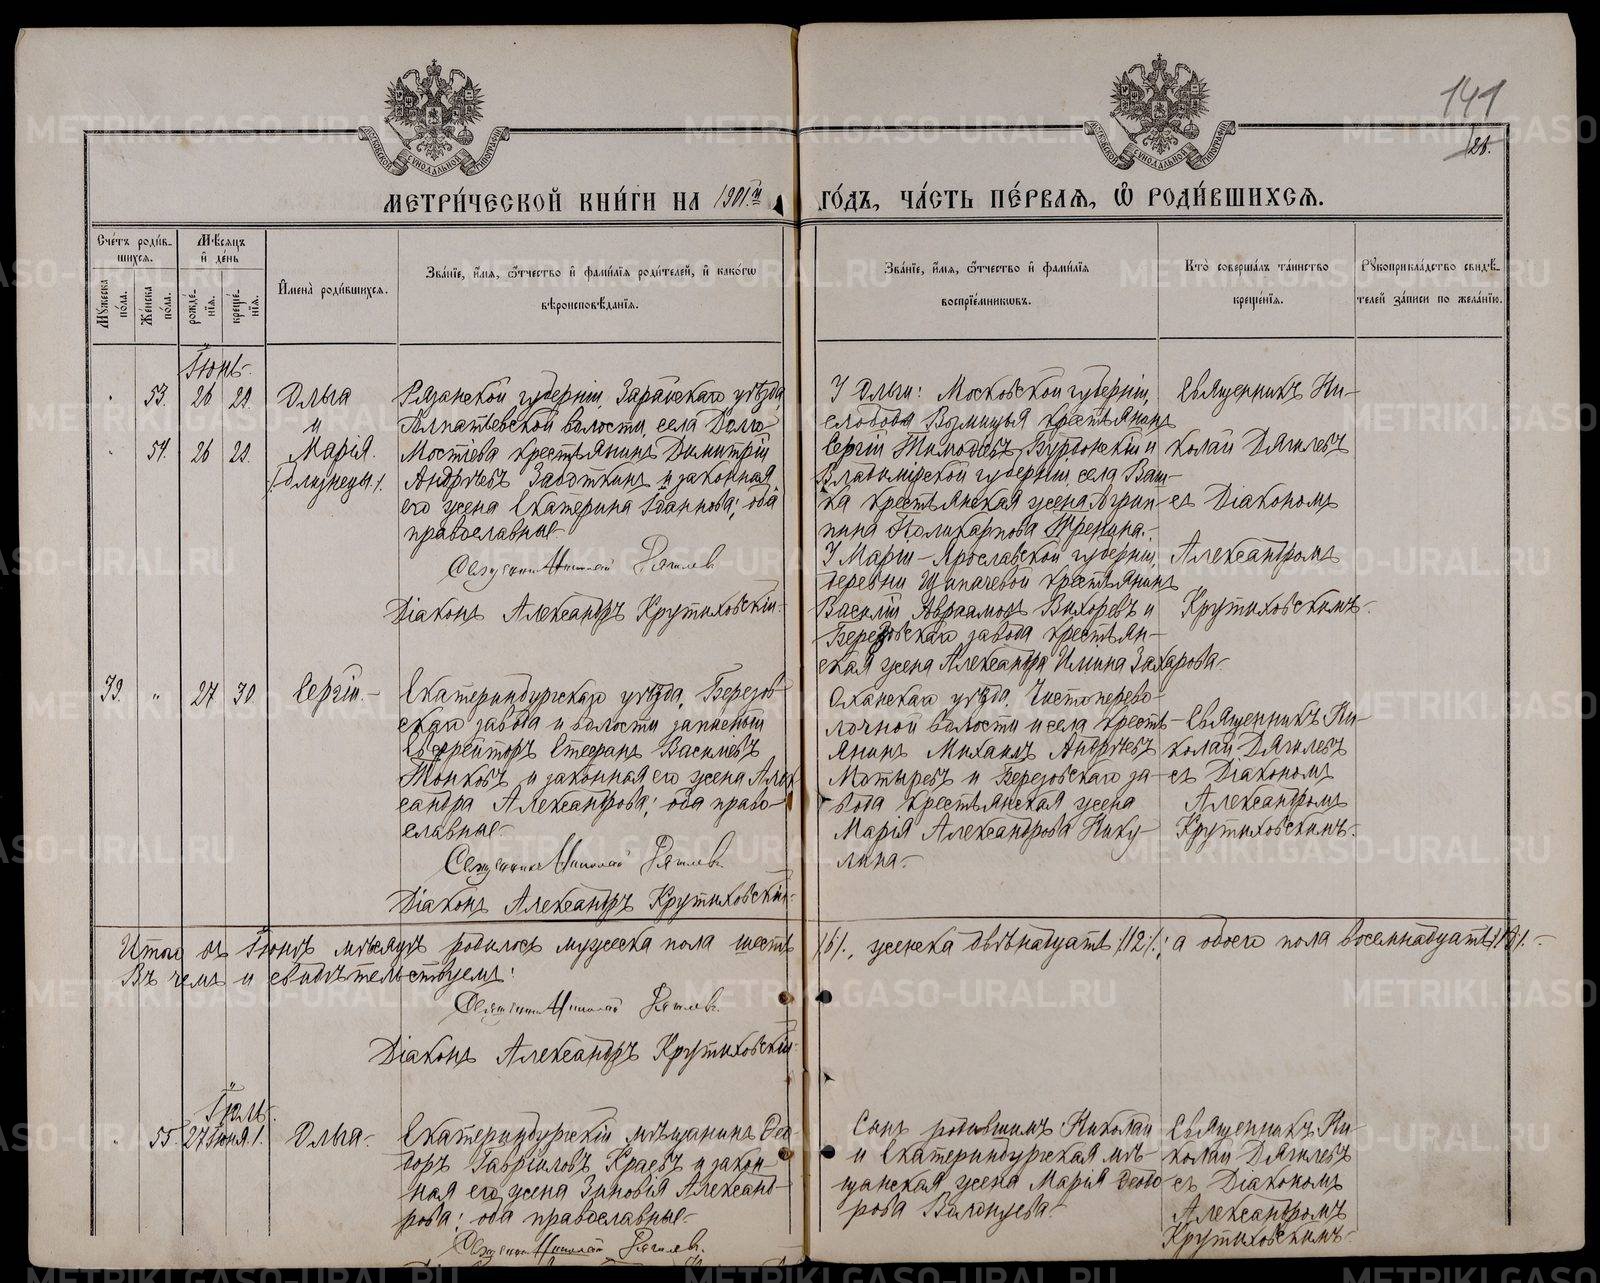 141
128.
МЕТРИ́ЧЕСКОЙ КНИ́ГИ НА 1901й
ГО́ДЪ, ЧА́СТЬ ПЕ́РВАѦ, Ѽ РОДИ́ВШИХСѦ.
Сче́тъ роди́в-
шихсѧ.
Мѣ́сѧцъ
и҆ де́нь
Мꙋ́жеска
по́ла.
Же́нска
по́ла.
рожде́-
нїѧ.
креще́-
нїѧ.
И҆мена̀ роди́вшихсѧ.
Зва́нїе, и҆́мѧ, ѻ҆́тчество и҆ фами́лїѧ роди́телей, и҆ како́гѡ
вѣроисповѣ́данїѧ.
Зва́нїе, и҆́мѧ, ѻ҆́тчество и҆ фами́лїѧ
воспрїе́мникѡвъ.
Кто̀ соверша́лъ та́инство
креще́нїѧ.
Рꙋкоприкла́дство свидѣ́-
телей за́писи по жела́нїю.
Іюнь
53. 26 29. Ольга
и
54. 26 29. Марія.
/близнецы/.
Рязанской губерніи, Зарайскаго уѣзда
волости, села Долго-
Мостьева крестьянинъ Димитрій
Андреевъ Заботкинъ и законная
его жена Екатерина Іоаннова; оба
православные
Священникъ Николай Дягилев
Діаконъ Александръ Крутиховскій
У Ольги: Московской губерніи,
слобода крестьянинъ
Сергій Тимофеевъ и
Владимірской губерніи села
крестьянская жена Агрип-
пина Поликарпова
У Маріи – Ярославской губерніи,
деревни крестьянинъ
Василій Авраамовъ Вихоревъ и
Березовскаго завода крестьян-
ская жена Александра Ильина Захарова
Священникъ Ни-
колай Дягилевъ
съ Діакономъ
Александромъ
Крутиховскимъ.
39. „ 27 30. Сергій
Екатеринбургскаго уѣзда, Березов-
скаго завода и волости запасный
Ефрейторъ Стефанъ Васильевъ
Тонковъ и законная его жена Алек-
сандра Александрова; оба право-
славные
Священникъ Николай Дягилев
Діаконъ Александръ Крутиховскій
Оханскаго уѣзда, Чистопереволочной
волости и села кресть-
янинъ Михаилъ Андреевъ
Мотыревъ и Березовскаго за-
вода крестьянская жена
Марія Александрова Нику-
лина
Священникъ Ни-
колай Дягилевъ
съ Діакономъ
Александромъ
Крутиховскимъ.
Итого въ Іюнѣ мѣсяцѣ родилось мужеска пола шесть /6/, женска двѣнадцать /12/; а обоего пола восемнадцать /18/.
Въ чемъ и свидѣтельствуемъ:
Священникъ Николай Дягилев
Діаконъ Александръ Крутиховскій
Іюль
55. 27 Іюня 1. Ольга
Екатеринбургскій мѣщанинъ Ѳео-
доръ Гавріиловъ Краевъ и закон-
ная его жена Зиновія Александ-
рова; оба православные
Священникъ Николай Дягилев
Сынъ родившимъ Николай
и Екатеринбургская мѣ-
щанская жена Марія Ѳеодо-
рова
Священникъ Ни-
колай Дягилевъ
съ Діакономъ
Александромъ
Крутиховскимъ
METRIKI.GASO-URAL.RU